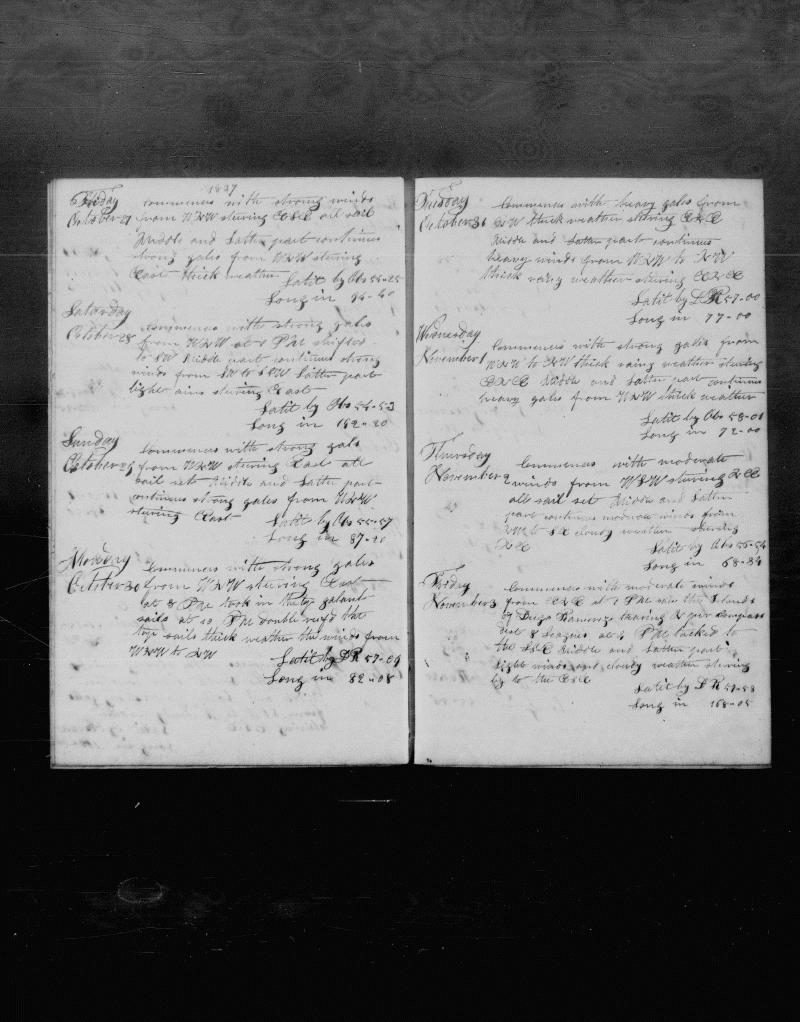 1837
Friday commences with strong winds
October 27 from WNW steering ESE all sail
Middle and Latter part continues
strong gales from WNW steering
East thick weather Latit by Obs 55-25
Long in 94-40
Saturday
October 28 Commences with strong gales
from WNW at 8 PM shifted
to SW Middle part continues strong
winds from SW to SSW Latter part
light airs stering East
Latit by Obs 54-53
Long in 192-20
Sunday
October 29 Commences with strong gals
from WNW steering East all
sail set Middle and Latter part
continues strong gales from WNW
steering East Latit by Obs 55-57
Long in 87-20
Monday
October 30 Commences with strong gales
from WNW steering East
at 8 PM took in the top galant
sails at 10 PM double reefd the
top sails thick weather the winds from
WNW to NW Latit by DR 57-09
Long in 82-08
Tuesday Commences with heavy gales from
October 31 NW thick weather stering ENE
Middle and Latter part continues
heavy winds from WNW to NW
thick rainy weather stering ENE
Latit by DR 57-00
Long in 77-00
Wednesday
November 1 Commences with strong gales from
WNW to NW thick rainy weather stering
ENE Middle and Latter part continues
heavy gales from WNW thick weather
Latit by Obs 58-01
Long in 72-00
Thursday
November 2 Commences with moderate
winds from WSW stering NE
all sail set Middle and Latter
part continues moderate winds from
to SE cloudy weather stering
NE Latit by Obs 56-54
Long in 68-34
Friday
November 3 Commences with moderate winds
from ENE at 1 PM saw the Islands
of Diego Ramerez bearing N per compass
dist 8 Leagues at 4 PM tacked to
the SSE Middle and Latter part
light winds and cloudy weather stering
by to the ESE
Latit by DR 57-53
Long in 168-05